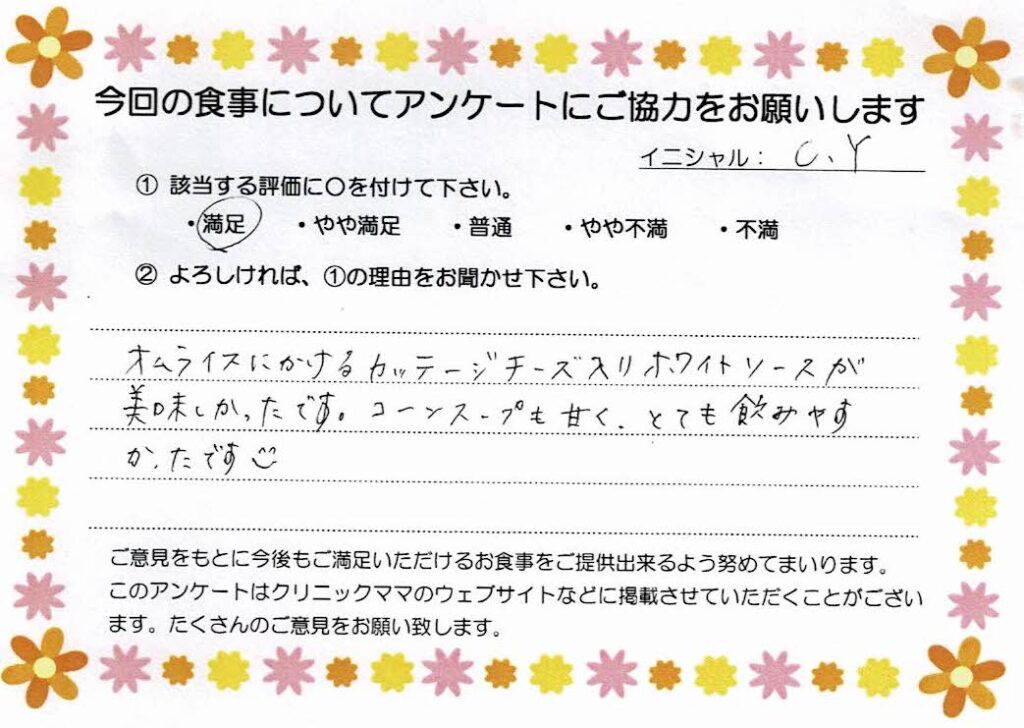 今回の食事についてアンケートにご協力をお願いします
イニシャル： C、Y
① 該当する評価に〇を付けて下さい。
・満足 ・やや満足 ・普通 ・やや不満 ・不満
② よろしければ、①の理由をお聞かせ下さい。
オムライスにかけるカッテージチーズ入りホワイトソースが
美味しかったです。コーンスープも甘く、とても飲みやす
かったです
ご意見をもとに今後もご満足いただけるお食事をご提供出来るよう努めてまいります。
このアンケートはクリニックママのウェブサイトなどに掲載させていただくことがござい
ます。たくさんのご意見をお願い致します。